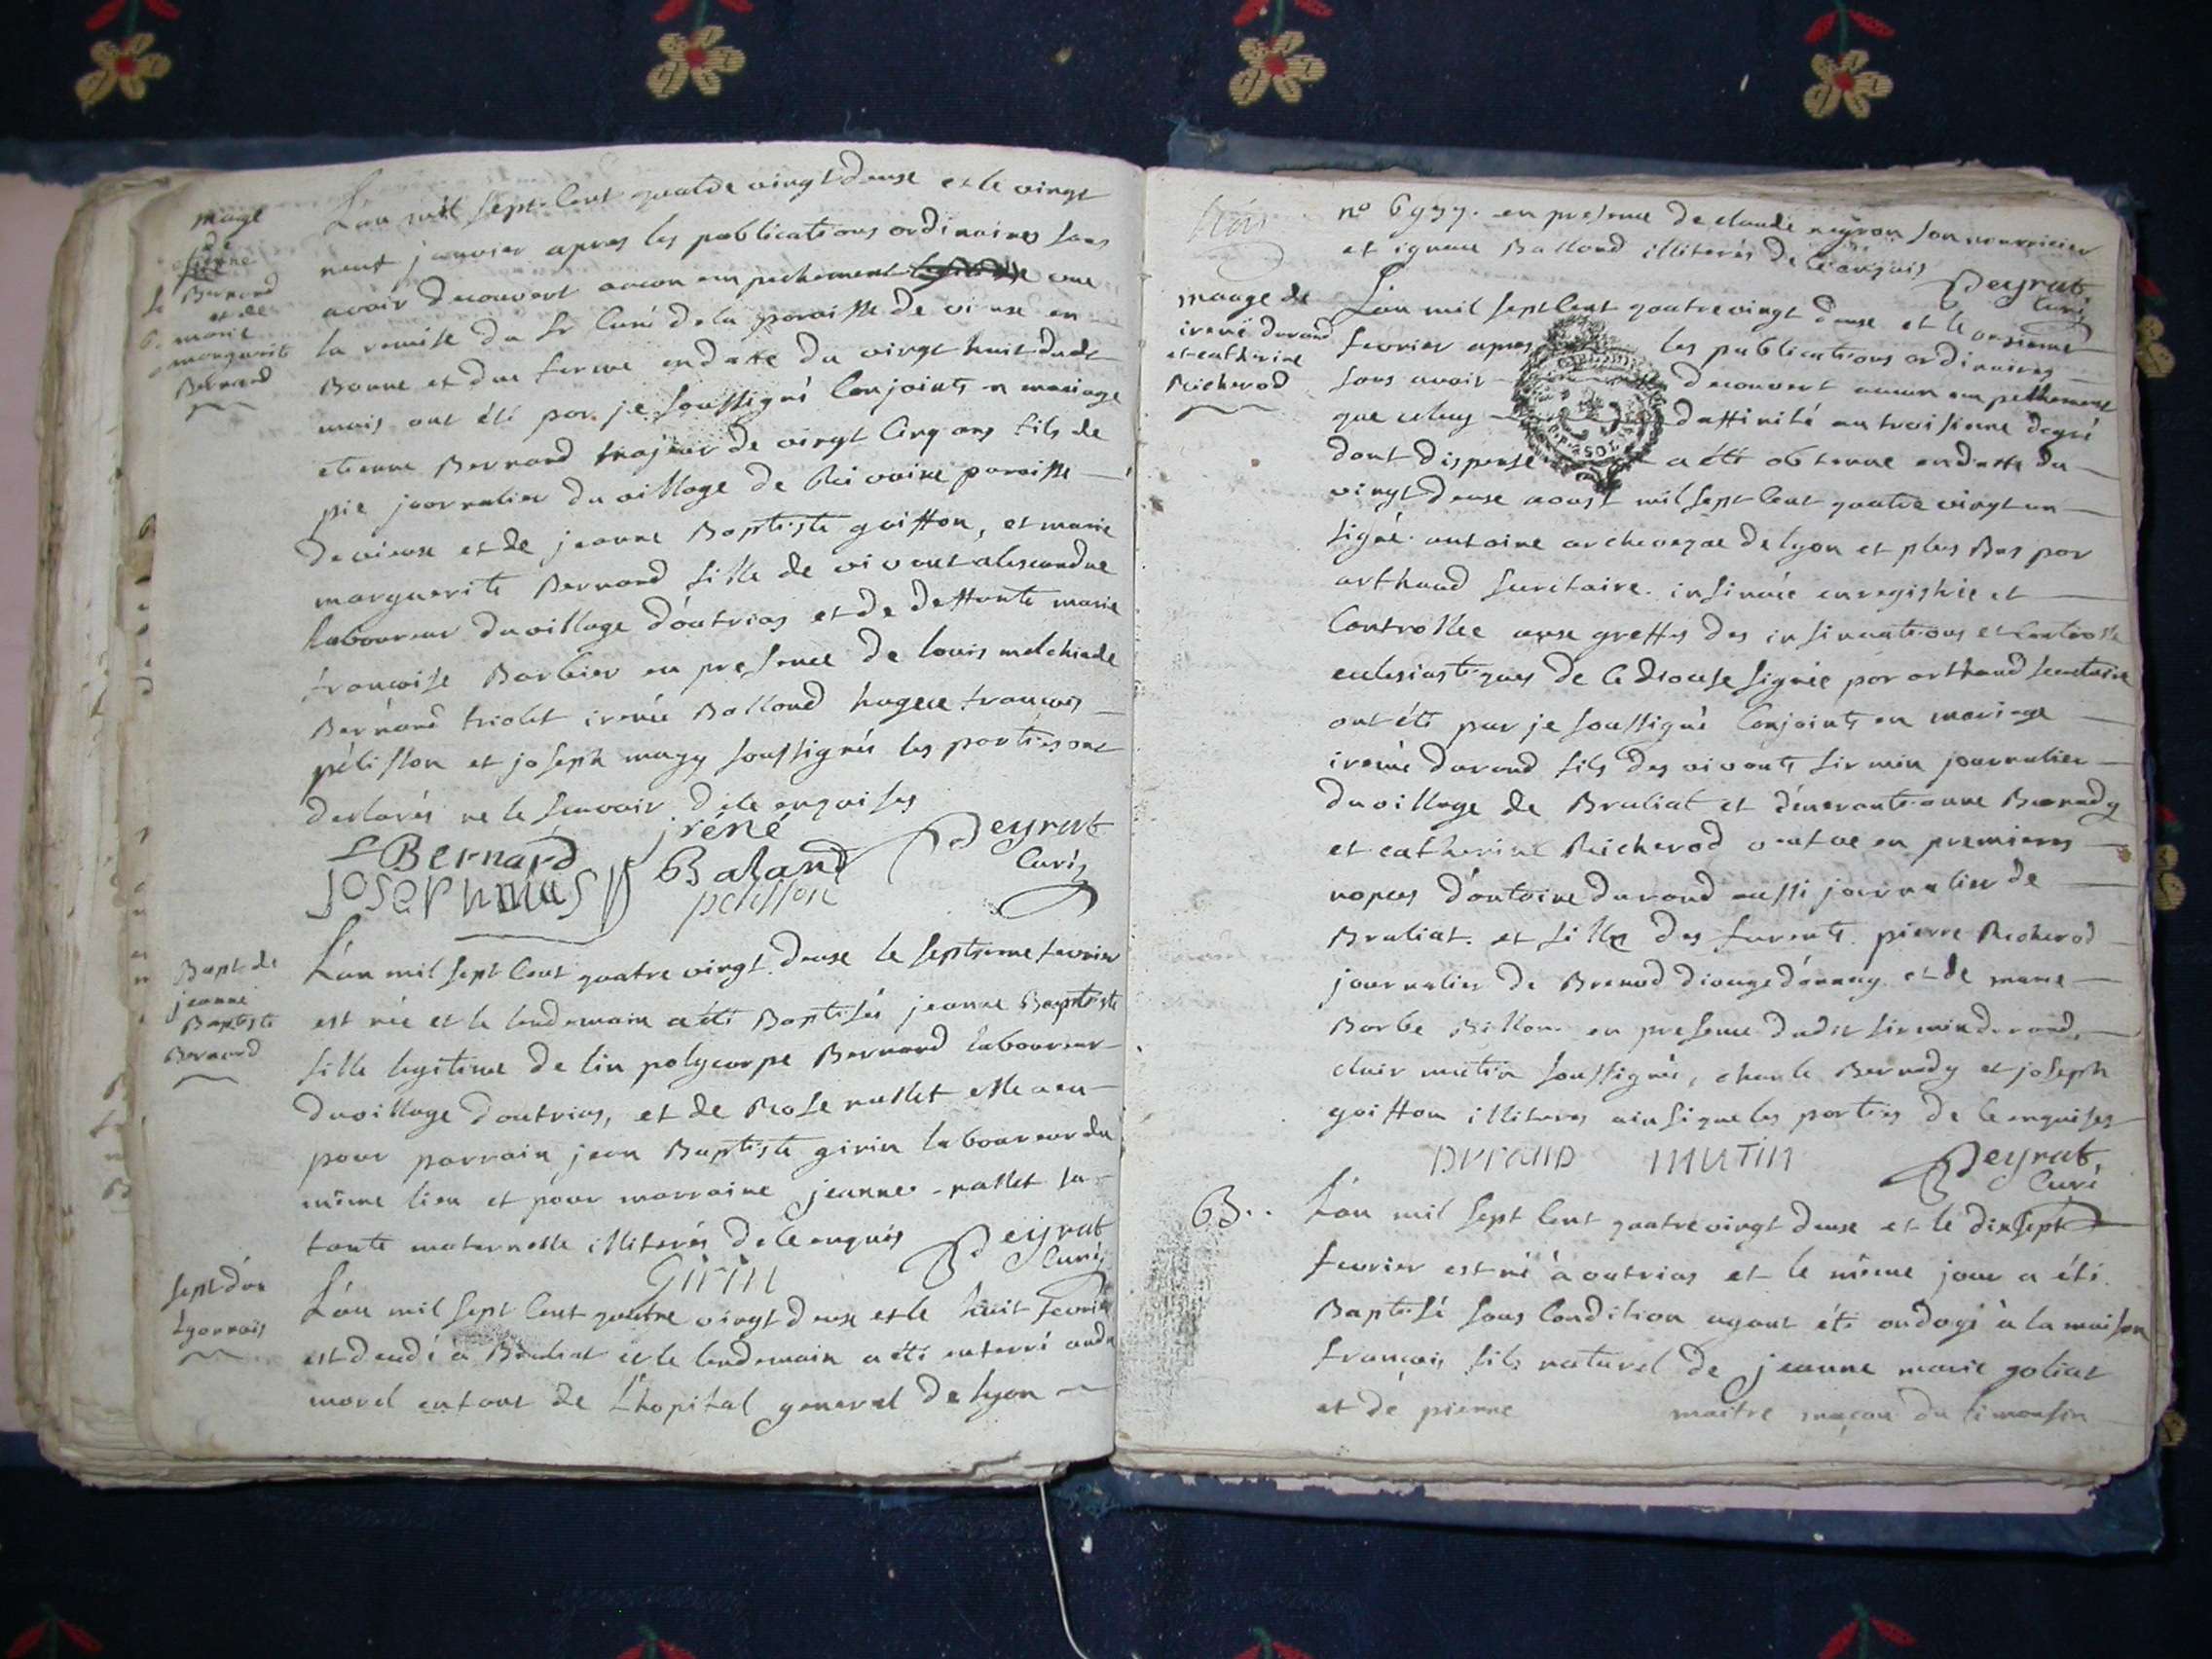 mage
de
etienne
Bernard
et de
marie
marguerite
Bernard
L'an mil sept cent quatre vingt deuse et le vingt
neuf janvier apres les publications ordinaires sans
avoir decouvert aucun empechement vue
la remise du Sr Curé de la paroisse de vieuse en
Bonne et due forme en datte du vingt huit dudt
mois ont été par je soussigné conjoints en mariage
etienne Bernard majeur de vingt cinq ans fils de
pie journalier du village de Rivoire paroisse
de vieuse et de jeanne Baptiste goiffon, et marie
marguerite Bernard fille de vivant alexandre
laboureur du village d'outrias et de deffunte marie
françoise Barbier en presence de louis melchiade
Bernard triolet irenée Balland francois
pélisson et joseph soussignés les parties ont
declarés ne le scavoir de ce enquises
L Bernard jréné Baland Peyrat
Curé
pelisson
Bapt de
jeanne
Baptiste
Bernard
L'an mil sept cent quatre vingt deuse le septieme fevrier
est née et le lendemain a été Baptisée jeanne Baptiste
fille legitime de lin polycarpe Bernard laboureur
du village doutrias, et de Rose nallet elle a eu
pour parrain jean Baptiste girin laboureur du
même lieu et pour marraine jeanne nallet sa
tante maternelle illiterés de ce enquis Peyrat
Curé
Girin
sept d'un
Lyonnais
L'an mil sept cent quatre vingt deuse et le huit fevrier
est decedé à Bruliat et le lendemain a été enterré
morel enfant de L'hopital general de lyon
n° 6977. en presence de claude neyron son nourricier
et igneau Balland illiterés de ce enquis Peyrat
Curé
mariage de
irené durand
et catherine
Richerod
L'an mil sept cent quatre vingt deuse et le onzieme
fevrier apres les publications ordinaires
sans avoir decouvert aucun empechement
que celuy daffinité au troisieme degré
dont dispense a été obtenue en datte du
vingt deuse aoust mil sept cent quatre vingt un
signé antoine archeveque de lyon et plus Bas par
arthaud secretaire. insinuée enregistrée et
Controllée auxe greffes des insinuations et controlle
eclesiastiques de ce diocese signée par arthaud secretaire
ont été par je soussigné conjoints en mariage
irenée durand fils des vivants firmin journalier
du village de Bruliat et d'enerante anne Bernady
et catherine Richerod veufve en premieres
nopces d'antoine durand aussi journalier de
Bruliat. et fille des furents pierre Richerod
journalier de Brenod diouge d'annecy et de marie
Barbe Billon en presence dudit firmin durand,
clair mutin soussignés, charle Bernady et joseph
goiffon illiteres ainsi que les parties de ce enquises
DURAND MUTIN Peyrat
Curé
B..
L'an mil sept cent quatre vingt deuse et le dix sept
fevrier est né à outrias et le même jour a été
Baptisé sous condition ayant été ondoyé à la maison
françois fils naturel de jeanne marie goliat
et de pierre maitre maçon du limousin